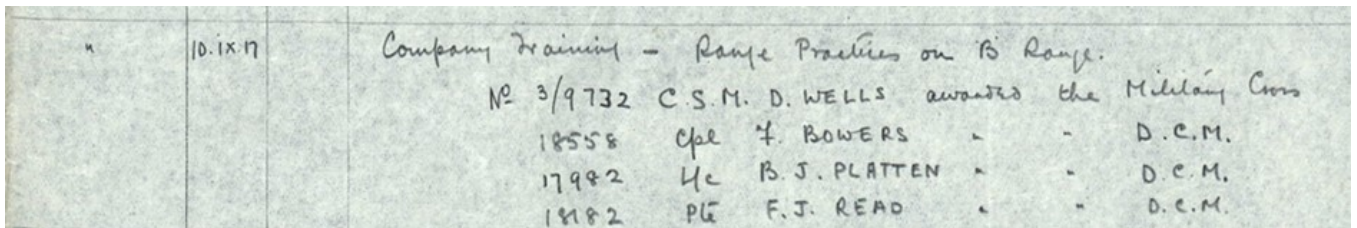 " 10.IX.17 Company Training – Range Practices on B Range.
Nº 3/9732 C.S.M. D. WELLS awarded the Military Cross
18558 Cpl F. BOWERS " " D.C.M.
17982 L/c B.J. PLATTEN " " D.C.M.
18182 Pte F.J. READ " " D.C.M.